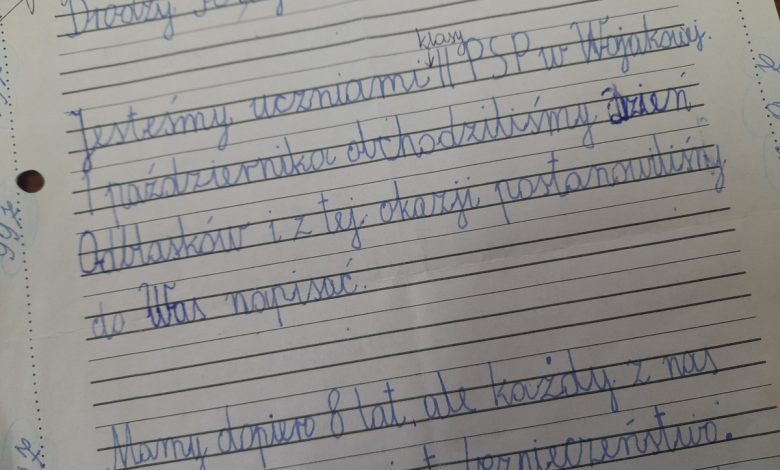 Drodzy
klasy
Jesteśmy uczniami II PSP w Wojakowej.
1 października obchodziliśmy Dzień
Odblasków i z tej okazji postanowiliśmy
do Was napisać.
Mamy dopiero 8 lat, ale każdy z nas
bezpieczeństwo.